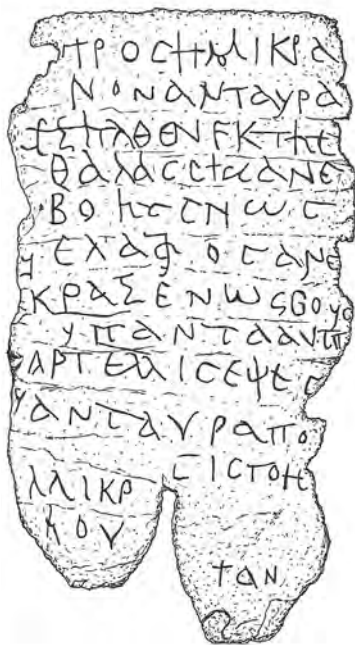 ΠΡΟCΗΜΙΚΡΑ
ΝΟΝΑΝΤΑΥΡΑ
ΕΞΗΛΘΕΝΕΚΤΗC
ΘΑΛΑCCΗCΑΝΕ
ΒΟΗCΕΝΩC
ΕΛΑΦΟCΑΝΕ
ΚΡΑΞΕΝΩCΒΟΥ
ΥΠΑΝΤΑΑΥΤΗ
ΑΡΤΕΜΙCΕΦΕC
ΑΝΤΑΥΡΑΠΟ
CΙCΤΟΗ
ΜΙΚΡ
ΜΟΥ
ΤΑΝ